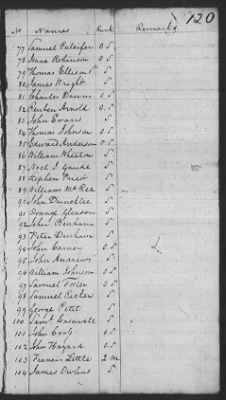 120
No Names Rank Remarks
77 Samuel Pulcifer O.S.
78 Isaac Robinson O.S.
79 Thomas Ellison S.
80 James Wright S.
81 Charles O.S.
82 Reuben Arnold O.S.
83 John Evans S.
84 Thomas Johnson O.S.
85 Edward Anderson O.S.
86 William Wheaton S.
87 Noel S.
88 Stephen Priest S.
89 William McRea S.
90 John Dunoblee S.
91 Gleason S.
92 John Benham S.
93 Peter Dunham S.
94 John Carney O.S.
95 John Andrews S.
96 William Johnson O.S.
97 Samuel Fowler O.S.
98 Samuel Ricker S.
99 George Petet S.
100 Saml Casewell S.
101 John Cook O.S.
102 John Hazard O.S.
103 Francis Little 2 M
104 James Owens S.